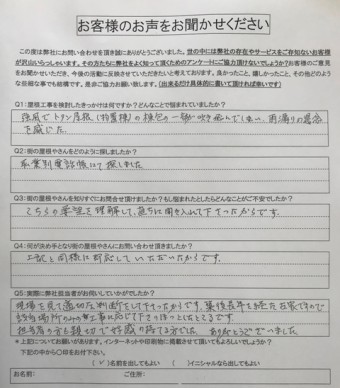 お客様のお声をお聞かせください
この度は弊社にお問い合わせを頂き誠にありがとうございました。世の中には弊社の存在やサービスをご存知ないお客様
が沢山いらっしゃいます。その方たちに弊社をよく知って頂くためのアンケートにご協力頂けないでしょうか?お客様のご意見
をお聞かせいただき、今後の活動に反映させていただきたいと考えております。良かったこと、嬉しかったこと、その他どのよう
な些細な事でも結構です。是非ご協力お願い致します。(出来るだけ具体的に書いて頂ければ幸いです)
Q1:屋根工事を検討したきっかけは何ですか?どんなことで悩まれていましたか?
強風でトタン屋根(物置様)の梱包の一部が吹き飛んでしまい、雨漏りの懸念
を感じた。
Q2:街の屋根やさんをどのように探しましたか?
職業別電話帳にて探しました
Q3:街の屋根やさんを知りすぐにお問合せ頂けましたか?もし悩まれたとしたらどんなことがご不安でしたか?
こちらの要望を理解して、直ちに聞き入れて下さったからです。
Q4:何が決め手となり街の屋根やさんにお問い合わせ頂きましたか?
上記と同様に対応していただいたからです。
Q5:実際に弊社担当者がお伺いしていかがでしたか?
現場を見て適切な判断をして下さったからです。築後長年を経た在家ですので
該当場所のみの工事に応じて下さってほっとしたところです。
担当者の方も親切で好感の持てる方でした。ありがとうございました。
*上記についてお願いがあります。インターネットや印刷物に掲載させて頂いてもよろしいでしょうか?
下記の中から〇印をお付け下さい。
(✓)名前を出してもよい ( )イニシャルなら出してもよい
お名前: ご住所: